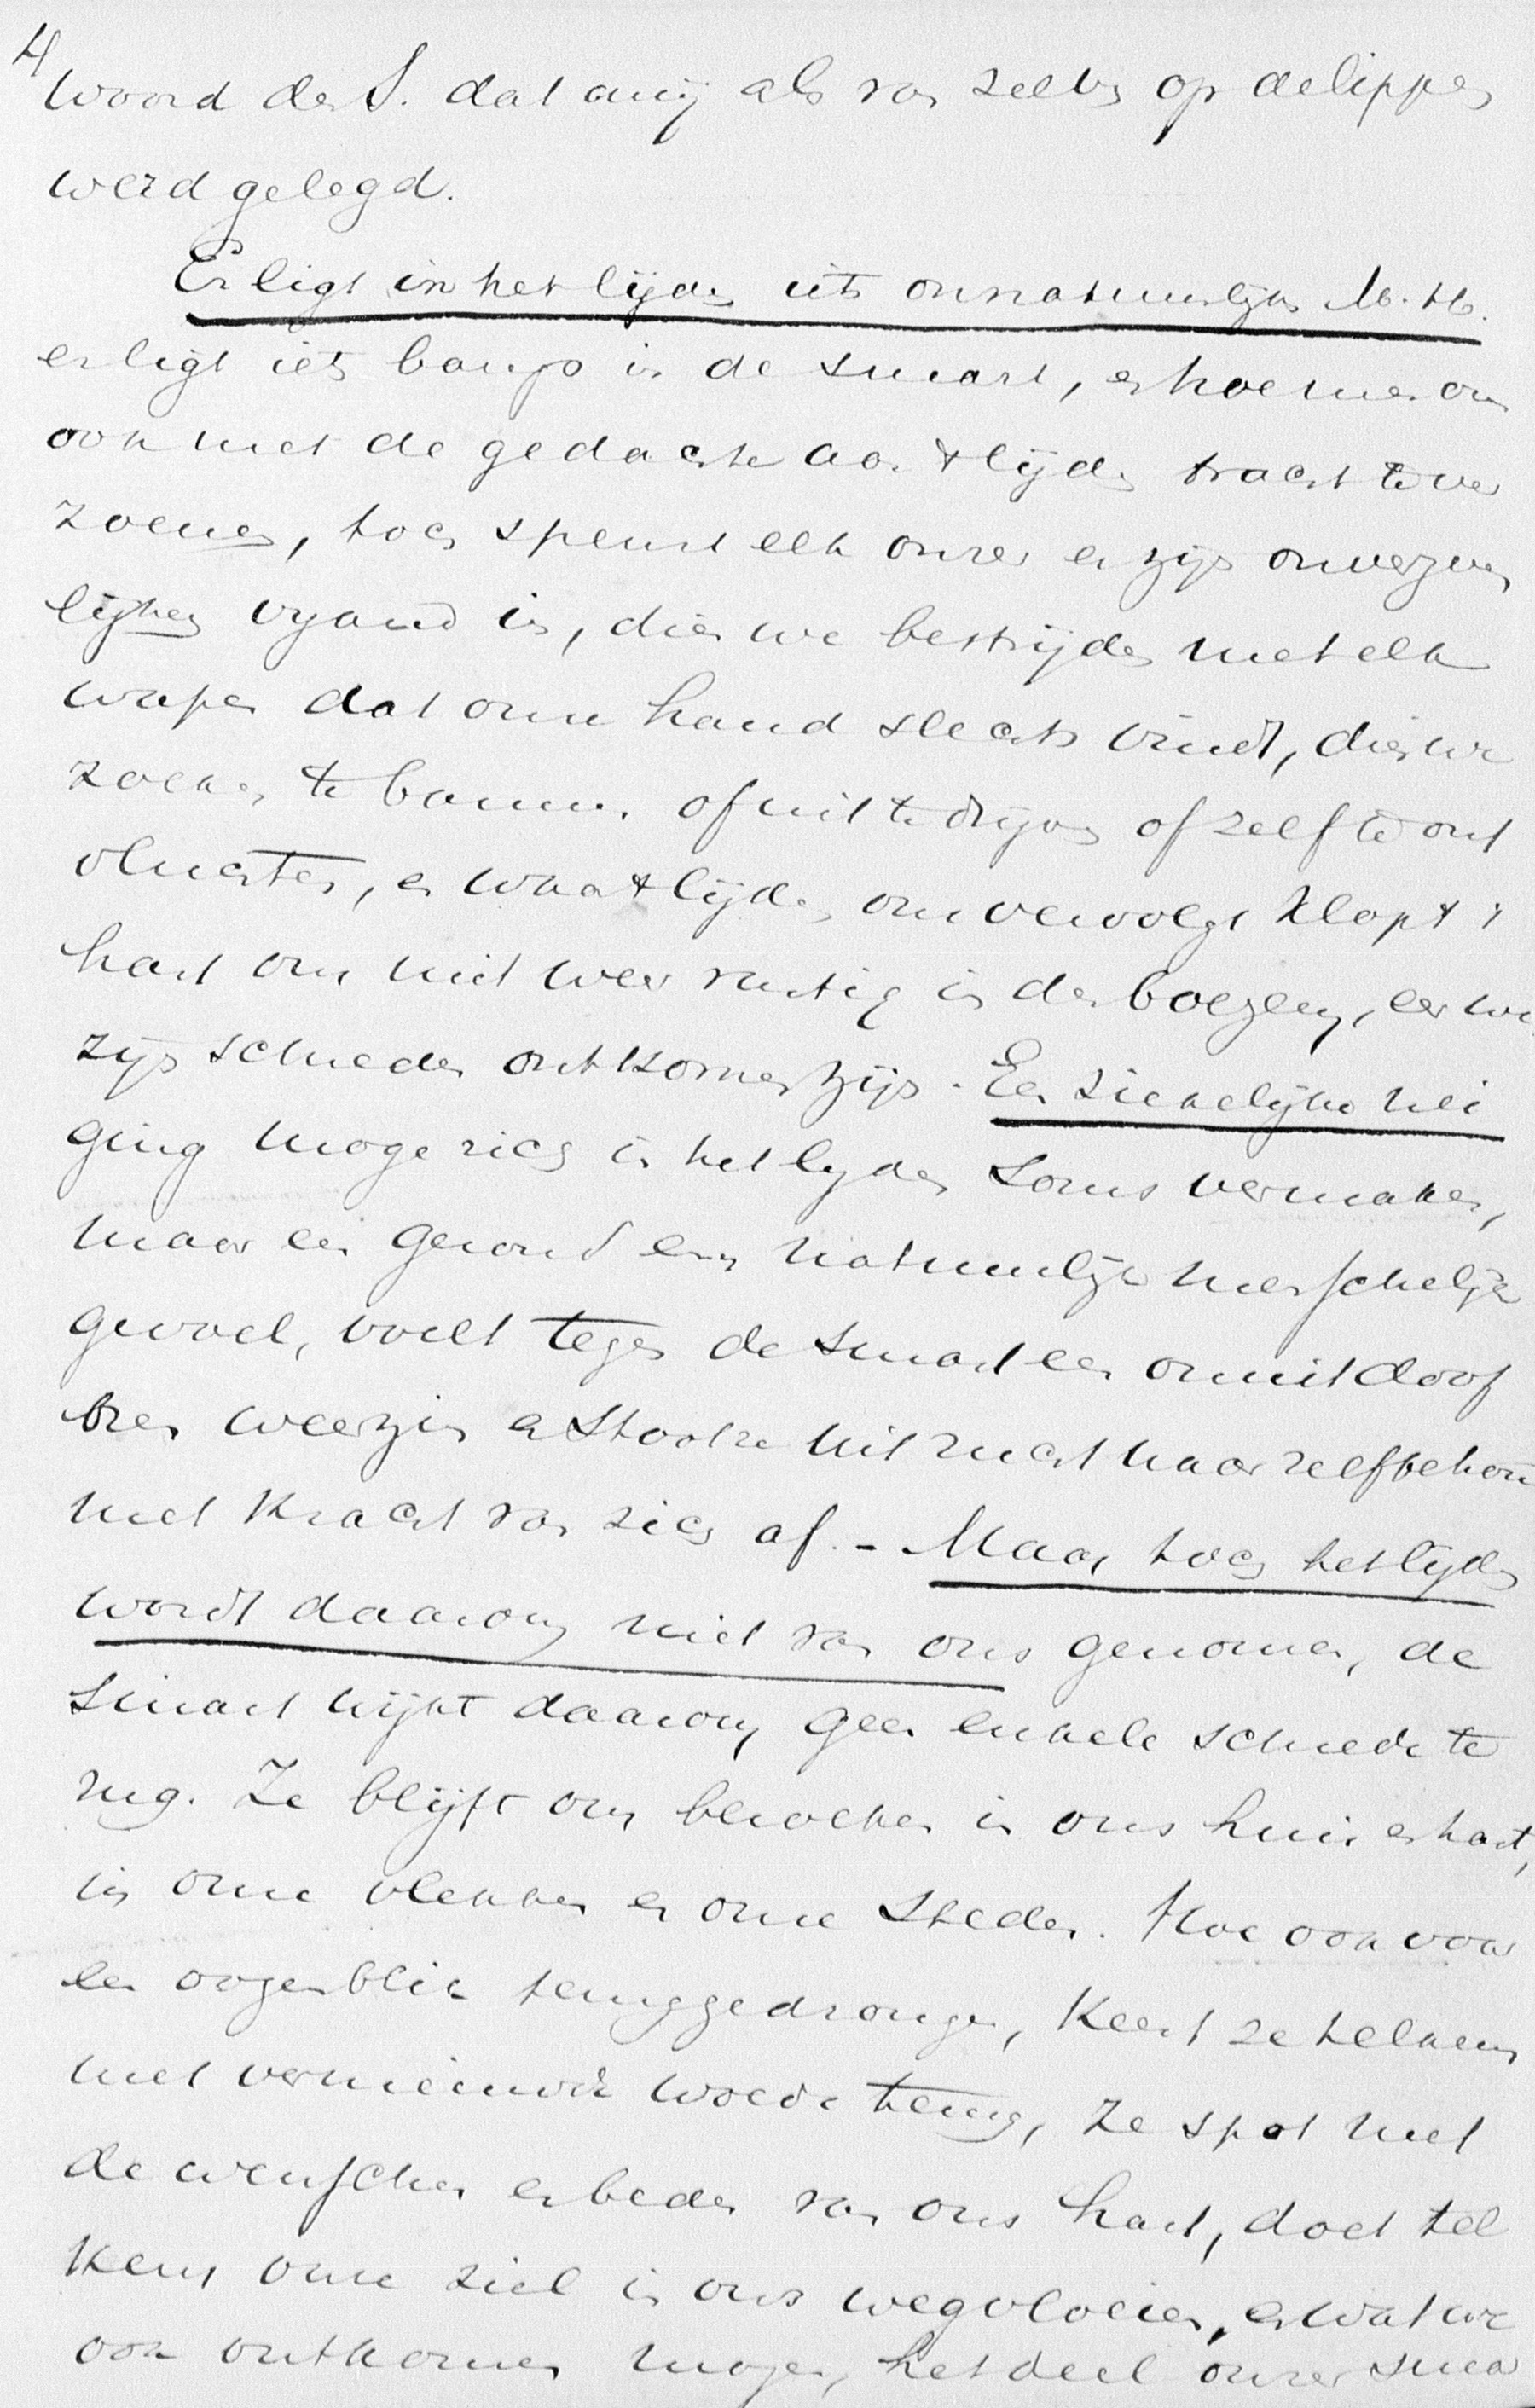 4
woord der S. dat mij als van zelve op de lippen
werd gelegd.
Er ligt in het lijden iets onnatuurlijks M. H.
er ligt iets bangs in de smart, en hoe men ons
ook met de gedachte aan 't lijden tracht te ver
zoenen, toch speurt elk onzer er zijn onverzoen
lijken vijand in, dien we bestrijden met elk
wapen dat onze hand slechts vindt, dien we
zoeken te bannen of uit te drijven of zelf te ont
vluchten, en waar 't lijden ons vervolgt klopt 't
hart ons niet weer rustig in den boezem, eer we
zijn schreden ontkomen zijn. Een ziekelijke nei
ging moge zich in het lyden soms vermaken,
maar een gezond en natuurlijk menschelijk
gevoel, voelt tegen de smart een onuitdoof
bren weerzin en stoot ze uit zucht naar zelfbehoud
met kracht van zich af. - Maar toch het lijden
wordt daarom niet van ons genomen, de
smart wijkt daarom geen enkele schrede te
rug. Ze blijft ons bezoeken in ons huis en hart,
in onze vlekken en onze steden. Hoe ook voor
een oogenblik teruggedrongen, keert ze telkens
met vernieuwde woede terug, ze spot met
de wenschen en beden van ons hart, doet tel
kens onze ziel in ons wegvloeien, en wat we
ook ontkomen mogen, het deel onzer smar